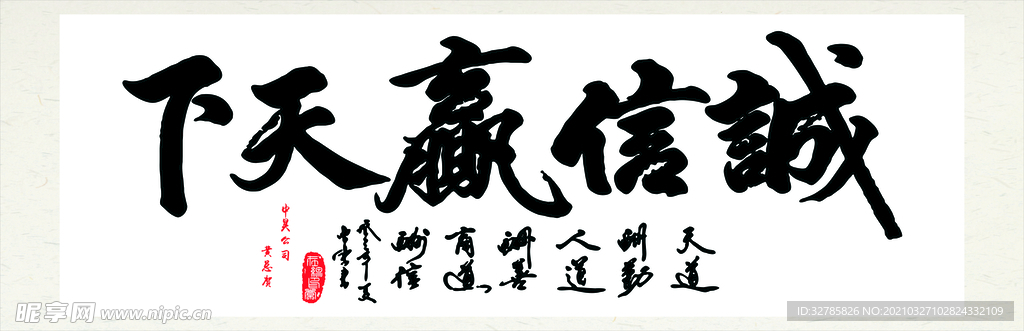 誠信贏天下
天道
酬勤
人道
酬善
商道
酬信
昵享网 www.nipic.cn
ID:32785826 NO:20210327102824332109